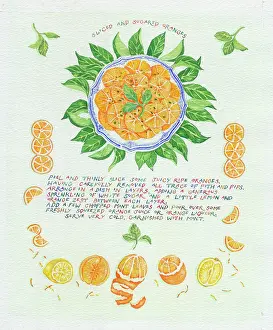 SLICED AND SUGARED ORANGES
PEEL AND THINLY SLICE SOME JUICY RIPE ORANGES,
HAVING CAREFULLY REMOVED ALL TRACE OF PITH AND PIPS.
ARRANGE IN A DISH IN LAYERS, ADDING A GENEROUS
SPRINKLING OF WHITE SUGAR AND A LITTLE LEMON AND
ORANGE ZEST BETWEEN EACH LAYER.
ADD A FEW CHOPPED MINT LEAVES AND POUR OVER SOME
FRESHLY SQUEEZED ORANGE JUICE OR ORANGE LIQUEUR.
SERVE VERY COLD, GARNISHED WITH MINT.